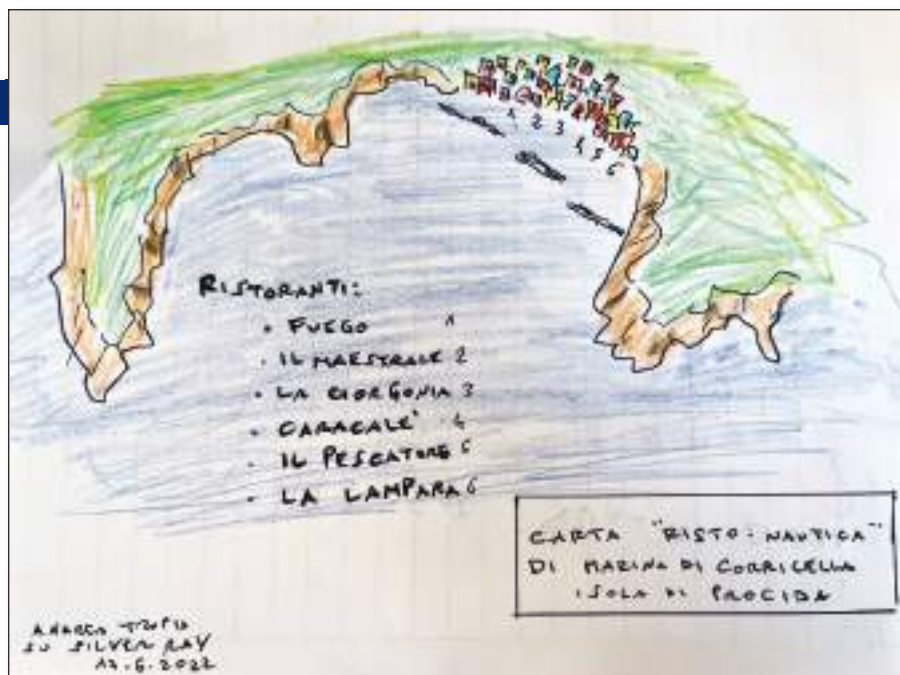 1 2 3
4 5 6
RISTORANTI:
• FUEGO 1
• IL MAESTRALE 2
• LA GORGONIA 3
• CARACALE' 4
• IL PESCATORE 5
• LA LAMPARA 6
CARTA "RISTO-NAUTICA"
DI MARINA DI CORRICELLA
ISOLA DI PROCIDA
ANDREA
SU SILVER RAY